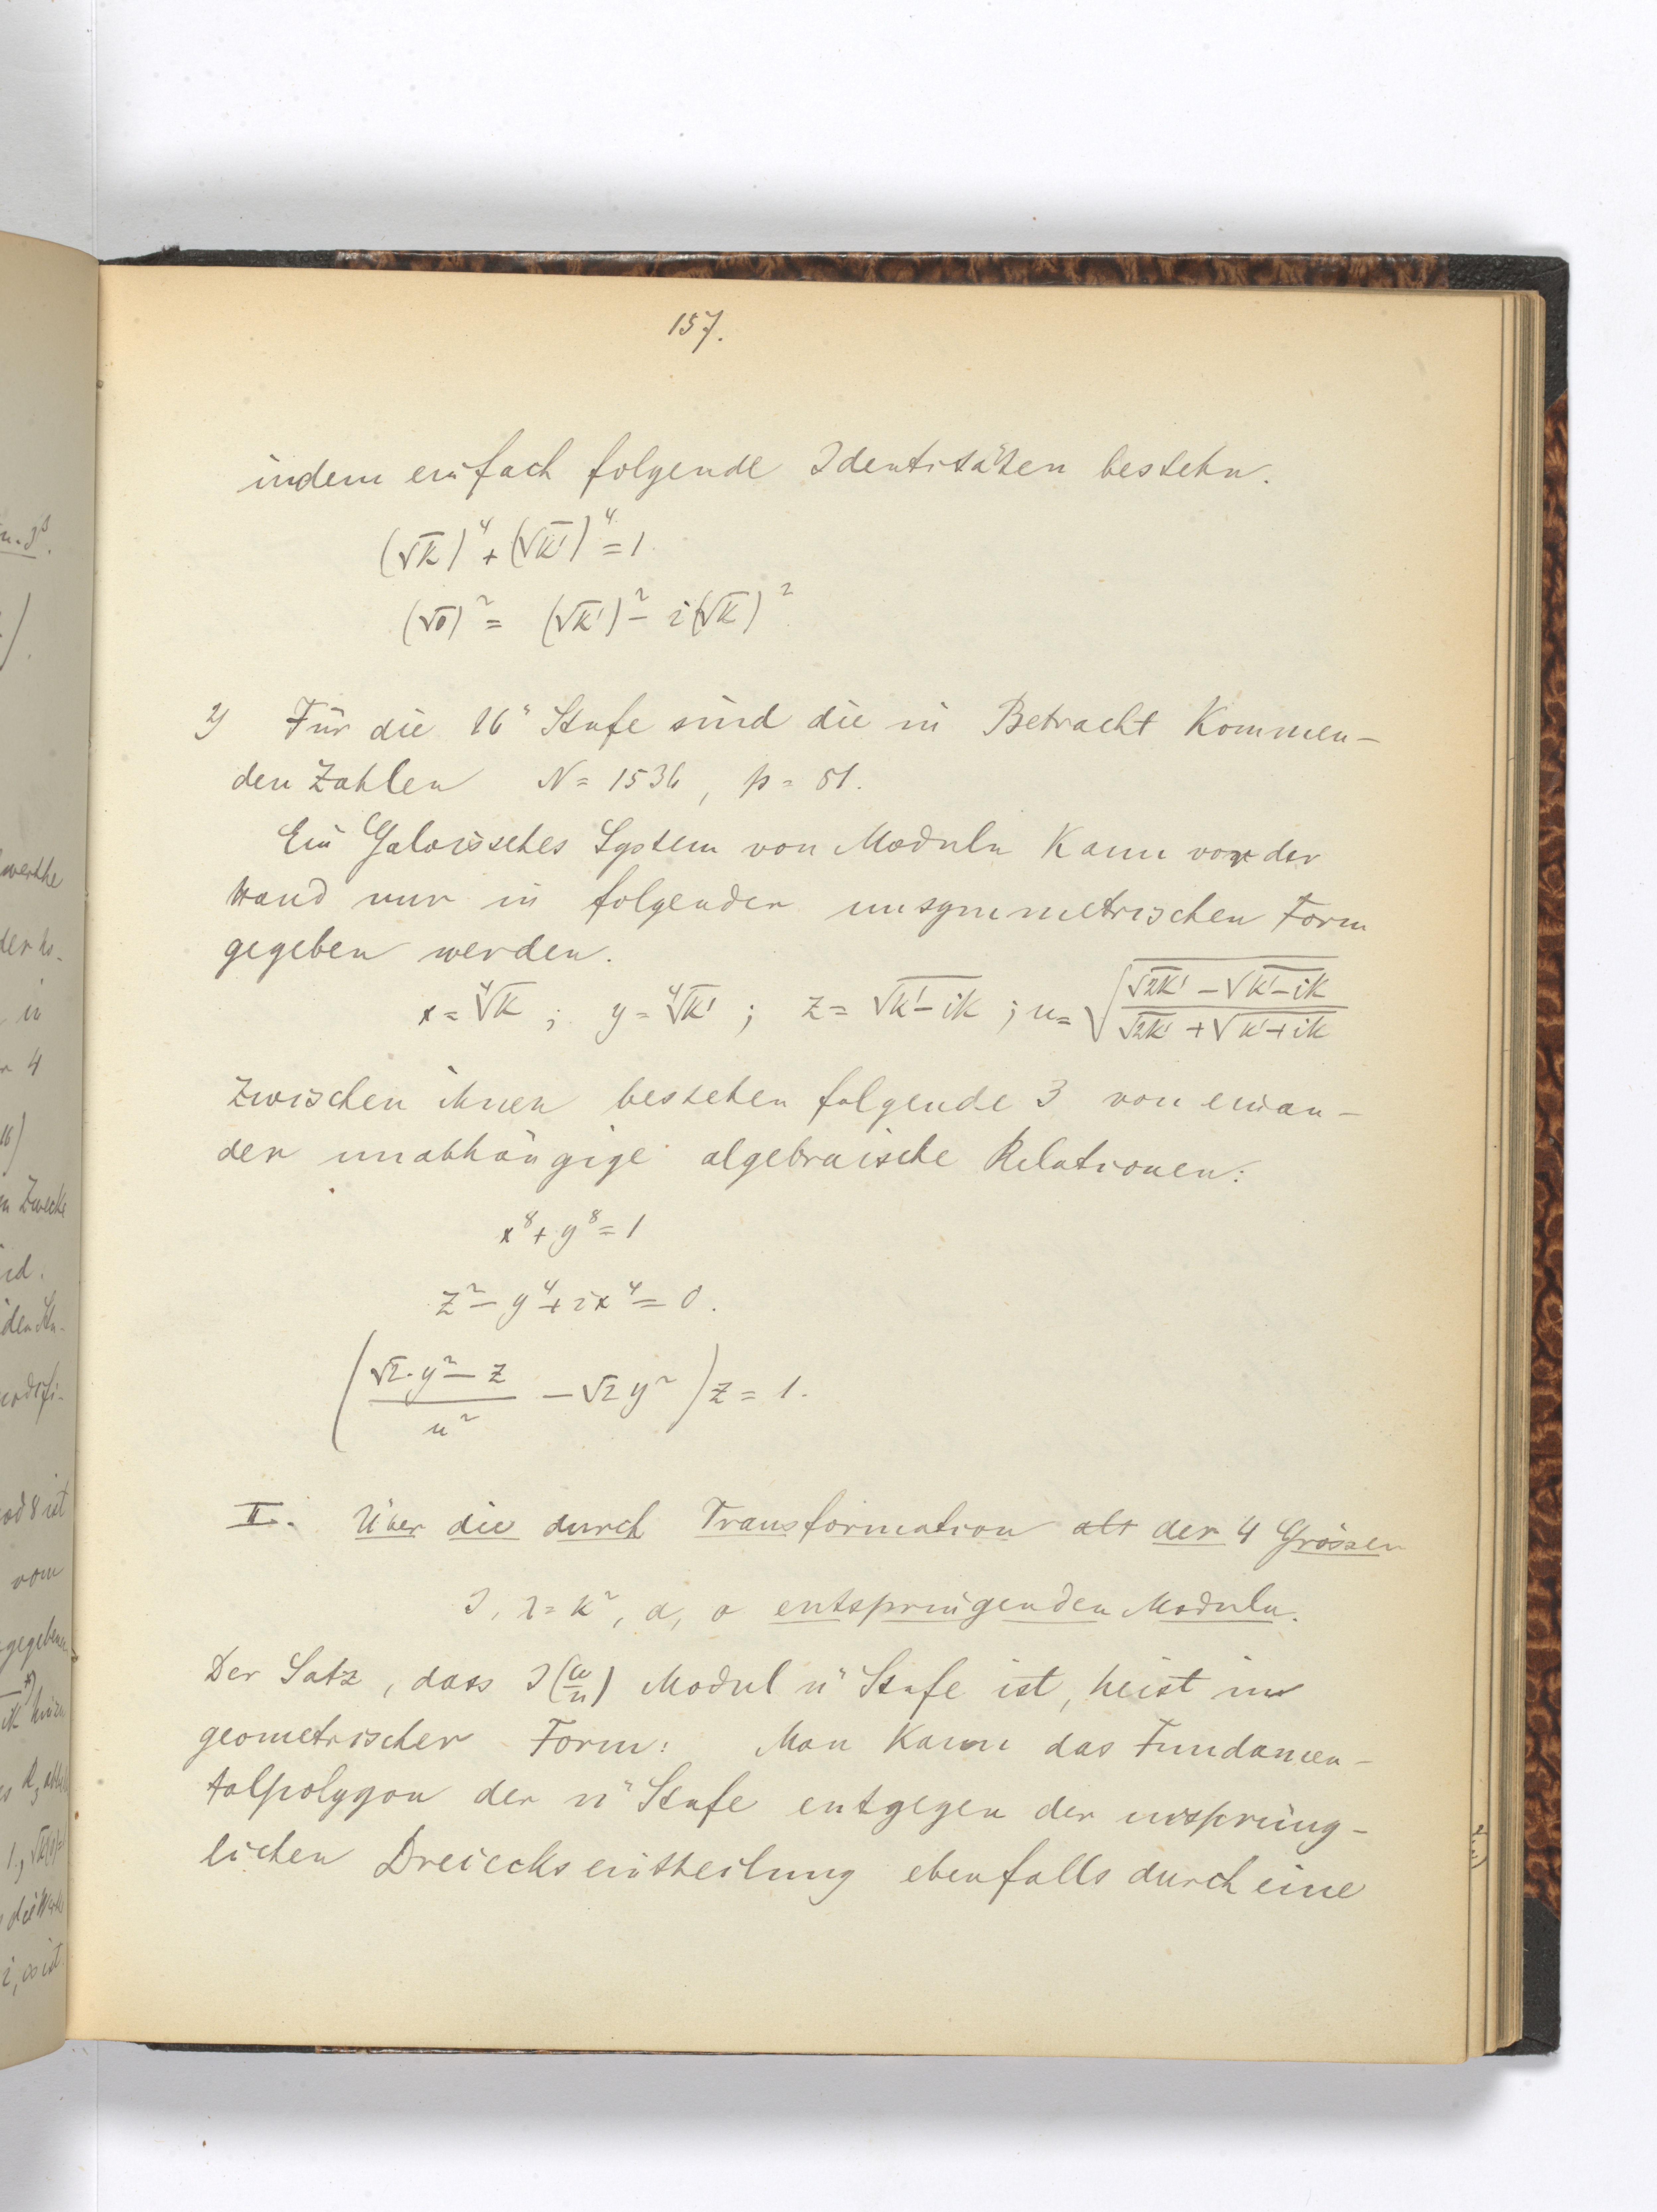 157.
indem einfach folgende Identitäten bestehn.
(√k)⁴ + (√k')⁴ = 1
(√o)² = (√k')² − i(√k)²
2) Für die 16ͭ Stufe sind die in Betracht kommen-
den Zahlen N = 1536, p = 81.
Ein Galoissches System von Moduln kann vor der
Hand nur in folgender unsymmetrischen Form
gegeben werden.
x = ∜k ; y = ∜k' ; z = √(k'−ik) ; u = √((√2k' − √(k'−ik))/(√2k' + √(k'+ik)))
Zwischen ihnen bestehen folgende 3 von einan-
der unabhängige algebraische Relationen:
x⁸ + y⁸ = 1
z² − y⁴ + ix⁴ = 0.
((√2·y² − z)/u² − √2 y²) z = 1.
II. Über die durch Transformation der 4 Grössen
J, λ = k², α, o entspringenden Moduln.
Der Satz, dass J(ω/n) Modul n" Stufe ist, heist in
geometrischer Form: Man kann das Fundamen-
talpolygon der n" Stufe entgegen der ursprüng-
lichen Dreieckseintheilung ebenfalls durch eine